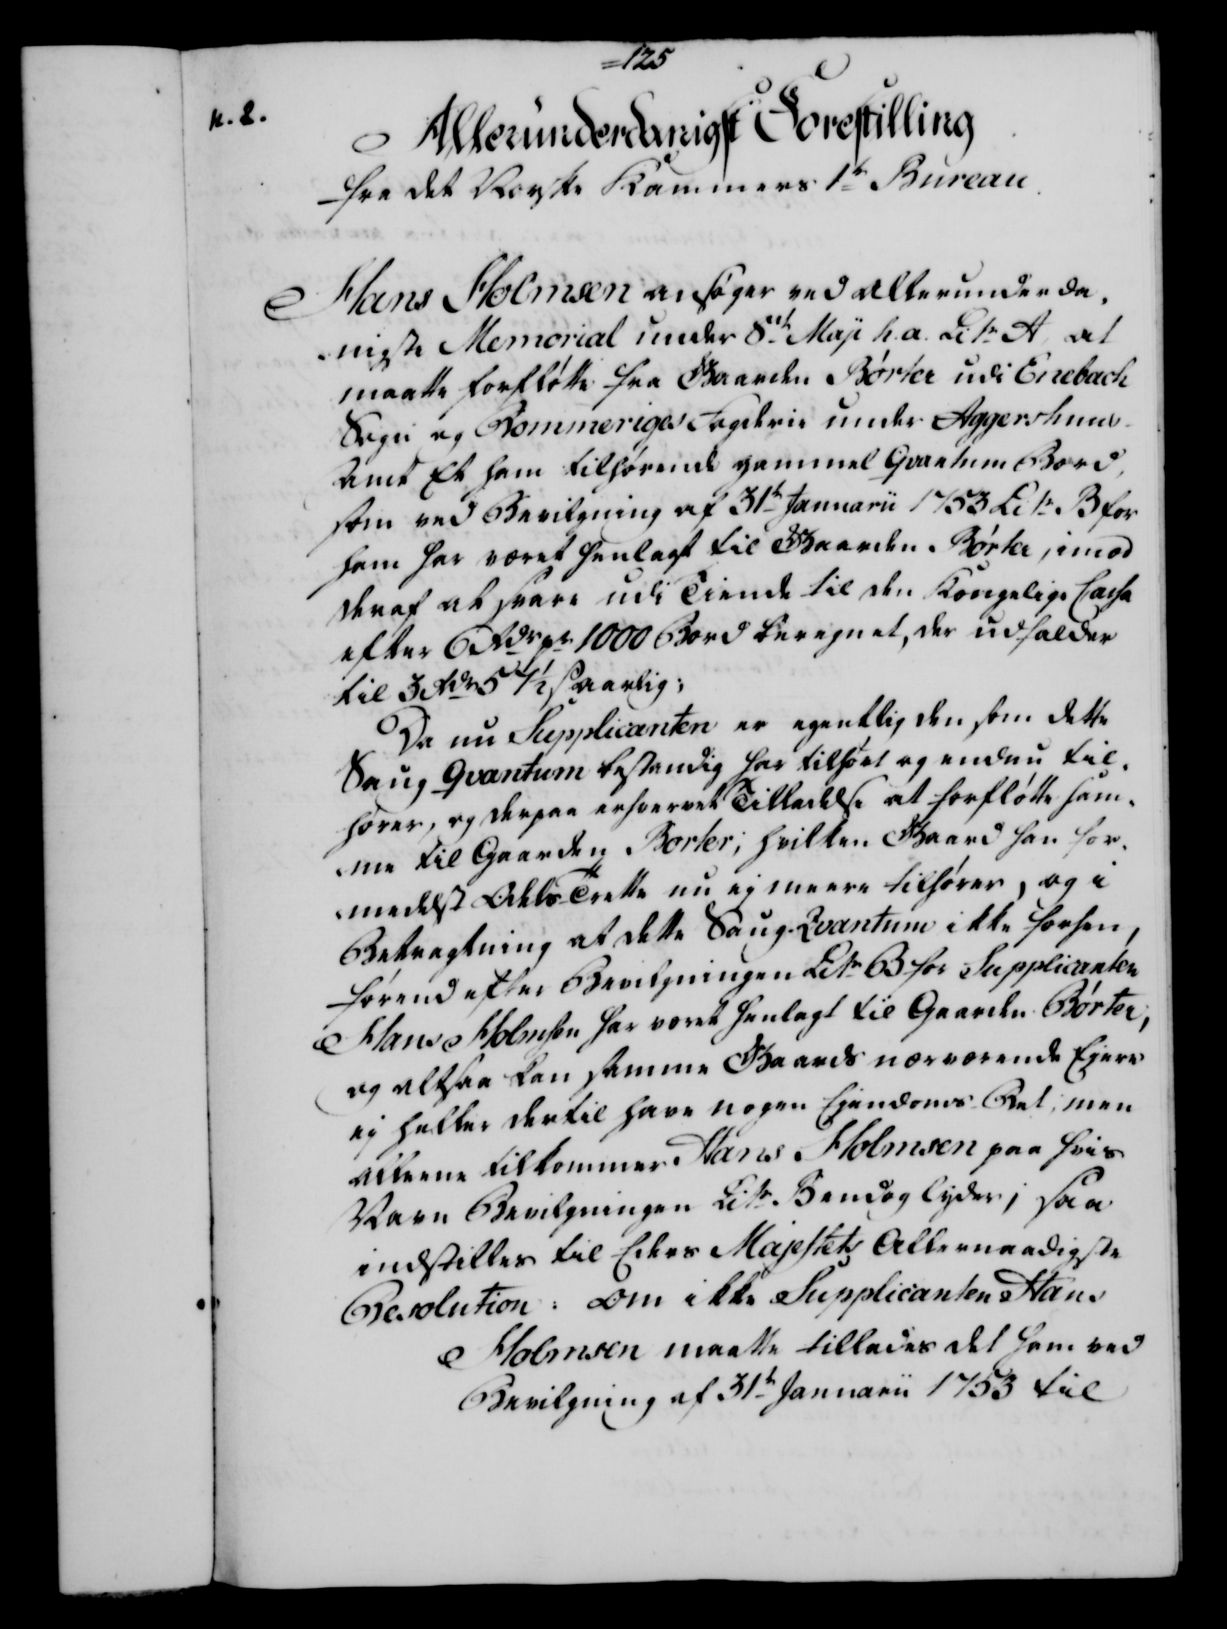 =125
n. 2.
Allerunderdanigst Forestilling
fra det Norske Kammers 1te Bureau.
Hans Holmsen ansøger ved allerunderda-
nigste Memorial under 8de Maji h.a. Litr A, at
maatte forfløtte fra Gaarden Børter udi Enebach
Sogn og Rommeriges Fogderie under Aggershuus
Amt Et ham tilhørende gammel Qvantum Bord,
som ved Bevilgning af 31te Januarii 1753 Litr. B for
ham har været henlagt til Gaarden Børter, imod
deraf at svare udi Tiende til den Kongelige Cassa
efter 6 Rdr pr 1000 Bord beregnet, der udfalder
til 3 Rdr 5 1/2 s aarlig;
Da nu Supplicanten er egentlig den som dette
Saug Qvantum bestandig har tilhørt og endnu til-
hører, og derpaa erhvervet Tilladelse at forfløtte sam-
me til Gaarden Børter; hvilken Gaard han for-
medelst Odels Trette nu ej meere tilhører, og i
Betragtning at dette Saug-Qvantum ikke forhen,
førend efter Bevilgningen Litr B for Supplicanten
Hans Holmsen har været henlagt til Gaarden Børter,
og altsaa kan samme Gaards nærværende Ejere
ej heller dertil have nogen Ejendoms-Ret, men
alleene tilkommer Hans Holmsen paa hvis
Navn Bevilgningen Litr. B endog lyder; saa
indstilles til Eders Majestets Allernaadigste
Resolution: Om ikke Supplicanten Hans
Holmsen maatte tillades det ham ved
Bevilgning af 31te Januarii 1753 til